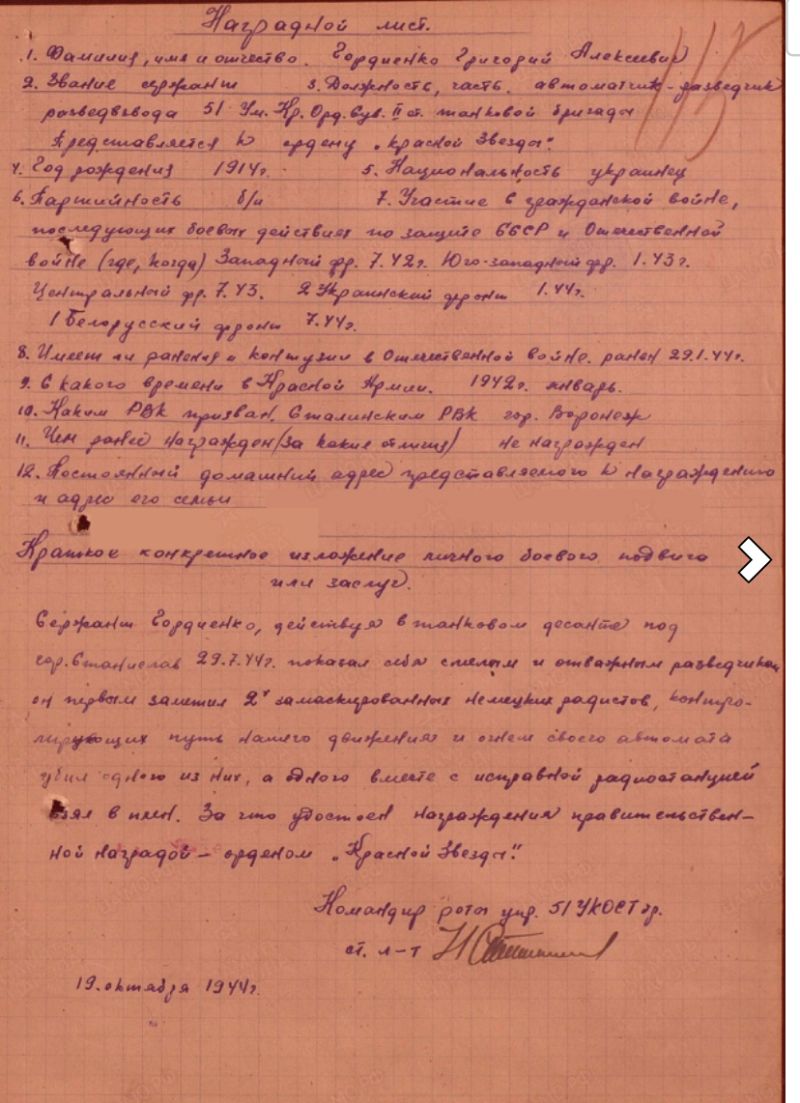 Наградной лист.
1. Фамилия, имя и отчество. Гордиенко Григорий Алексеевич
2. Звание сержант 3. Должность, часть. автоматчик-разведчик
разведвзвода 51 Ум. Кр. Орд. Сув. II ст. танковой бригады
Представляется к ордену „Красной Звезды".
4. Год рождения 1914г. 5. Национальность украинец
6. Партийность б/п 7. Участие в гражданской войне,
последующих боевых действиях по защите СССР и Отечественной
войне (где, когда) Западный фр. 7.42г. Юго-западный фр. 1.43г.
Центральный фр. 7.43. 2 Украинский фронт 1.44г.
1 Белорусский фронт 7.44г.
8. Имеет ли ранения и контузии в Отечественной войне. ранен 29.1.44г.
9. С какого времени в Красной Армии. 1942г. январь.
10. Каким РВК призван. Сталинским РВК гор. Воронеж
11. Чем ранее награжден (за какие отличия) не награжден
12. Постоянный домашний адрес представляемого к награждению
и адрес его семьи
Краткое конкретное изложение личного боевого подвига
или заслуг.
Сержант Гордиенко, действуя в танковом десанте под
гор. Станислав 29.7.44г. показал себя смелым и отважным разведчиком
он первым заметил 2х замаскированных немецких радистов, контро-
лирующих путь нашего движения и огнем своего автомата
убил одного из них, а одного вместе с исправной радиостанцией
взял в плен. За что удостоен награждения правительствен-
ной наградой – орденом „Красной Звезды".
Командир роты упр. 51 УКОСТбр.
ст. л-т
19. октября 1944г.